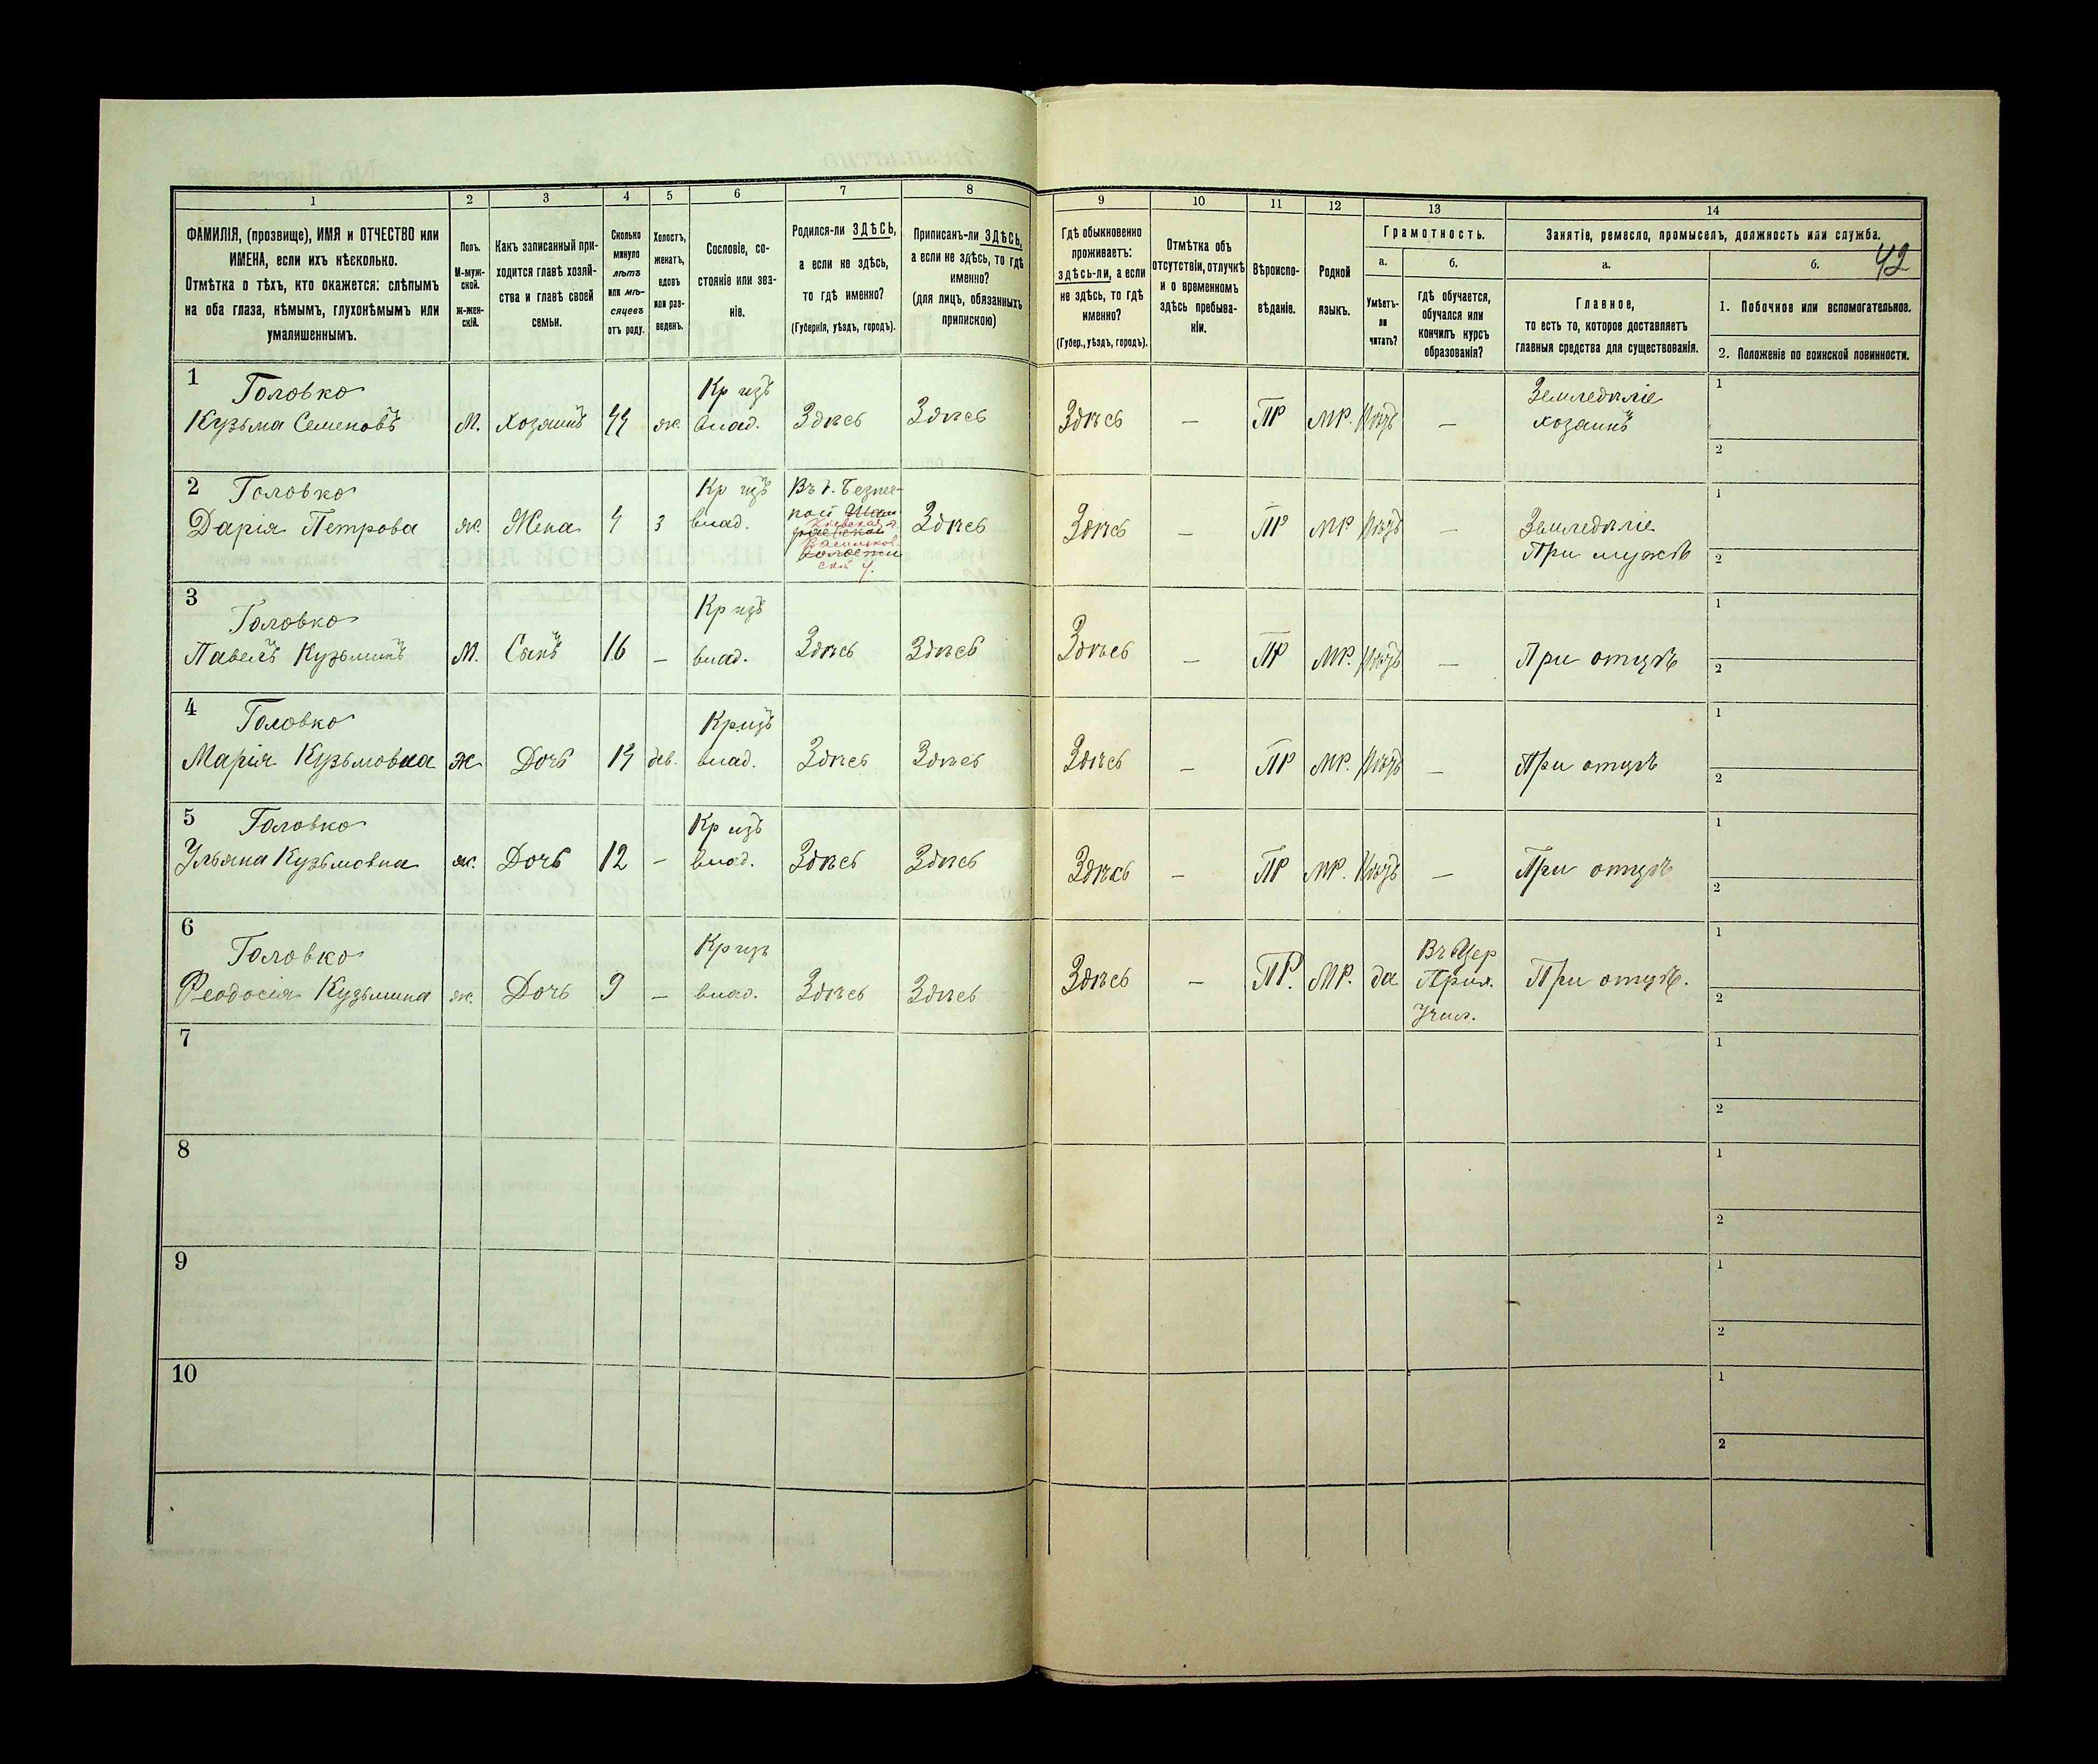 1 2 3 4 5 6 7 8 9 10 11 12 13 14
ФАМИЛІЯ, (прозвище), ИМЯ и ОТЧЕСТВО или
ИМЕНА, если ихъ нѣсколько.
Отмѣтка о тѣхъ, кто окажется: слѣпымъ
на оба глаза, нѣмымъ, глухонѣмымъ или
умалишеннымъ.
Полъ.
М-муж-
ской.
ж-жен-
скій.
Какъ записанный при-
ходится главѣ хозяй-
ства и главѣ своей
семьи.
Сколько
минуло
лѣтъ
или мѣ-
сяцевъ
отъ роду.
Холостъ,
женатъ,
вдовъ
или раз-
веденъ.
Сословіе, со-
стояніе или зва-
ніе.
Родился-ли ЗДѢСЬ,
а если не здѣсь,
то гдѣ именно?
(Губернія, уѣздъ, городъ).
Приписанъ-ли ЗДѢСЬ,
а если не здѣсь, то гдѣ
именно?
(для лицъ, обязанныхъ
припискою)
Гдѣ обыкновенно
проживаетъ:
здѣсь-ли, а если
не здѣсь, то гдѣ
именно?
(Губер., уѣздъ, городъ).
Отмѣтка объ
отсутствіи, отлучкѣ
и о временномъ
здѣсь пребыва-
ніи.
Вѣроиспо-
вѣданіе.
Родной
языкъ.
Грамотность.
а.
Умѣетъ-
ли
читать?
б.
гдѣ обучается,
обучался или
кончилъ курсъ
образованія?
Занятіе, ремесло, промыселъ, должность или служба.
42
а.
Главное,
то есть то, которое доставляетъ
главныя средства для существованія.
б.
1. Побочное или вспомогательное.
2. Положеніе по воинской повинности.
1 Головко Кр изъ Земледѣліе 1
Кузьма Семеновъ М. хозяинъ 44 ж. влад. Здѣсь Здѣсь Здѣсь — ПР МР. — хозаинъ
2
2 Головко Кр изъ 1
Дарія Петрова ж. Жена з влад. Здѣсь Здѣсь — ПР МР — Земледѣліе
При мужѣ
2
3 Головко Кр изъ 1
Павелъ Кузьминъ М. Сынъ 16 — влад. Здѣсь Здѣсь Здѣсь — ПР МР. — При отцѣ
2
4 Головко Кр изъ 1
Марія Кузьмовна ж Дочь 14 дѣв. влад. Здѣсь Здѣсь Здѣсь — ПР МР. — При отцѣ
2
5 Головко Кр изъ 1
Ульяна Кузьмовна ж. Дочь 12 — влад. Здѣсь Здѣсь Здѣсь — ПР МР. — При отцѣ
2
6 Головко Кр изъ Въ Цер 1
Феодосія Кузьмина ж. Дочь 9 — влад. Здѣсь Здѣсь Здѣсь — ПР. МР. да Прих. При отцѣ.
Учил.
2
7 1
2
8 1
2
9 1
2
10 1
2